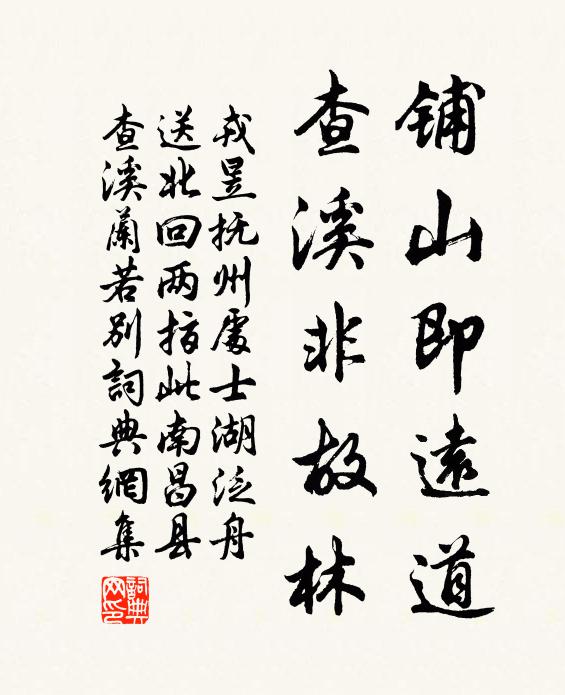 铺山即遠道
查溪非故林
戎昱抚州處士湖泛舟
送北回两指此南昌县
查溪蘭若別詞典網集
詞典
网印